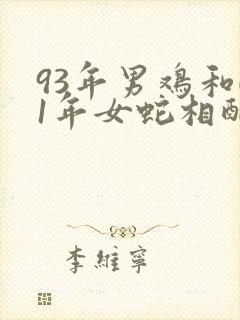 93年男鸡和
1年女蛇相配
李維寧